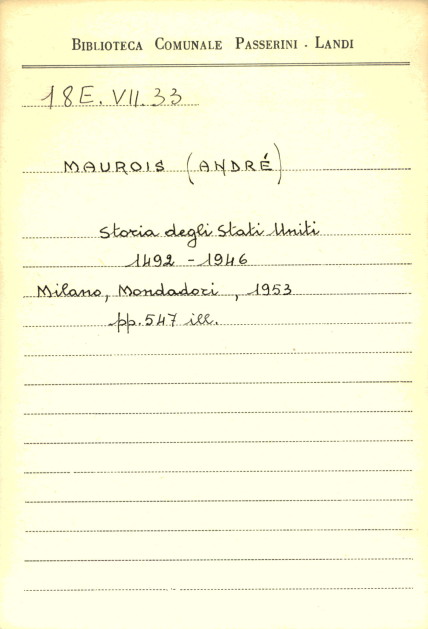 BIBLIOTECA COMUNALE PASSERINI - LANDI
18E. VII. 33
MAUROIS (ANDRÉ)
Storia degli Stati Uniti
1492 - 1946
Milano, Mondadori, 1953
pp. 547 ill.